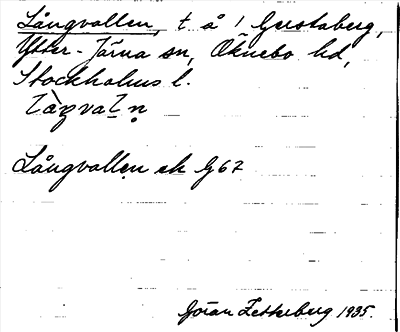 Långvallen, t å 1 Gerstaberg,
Ytter-Järna sn, Öknebo hd,
Stockholms l.
Långvallen ek G67
Göran Zetterberg 1935.